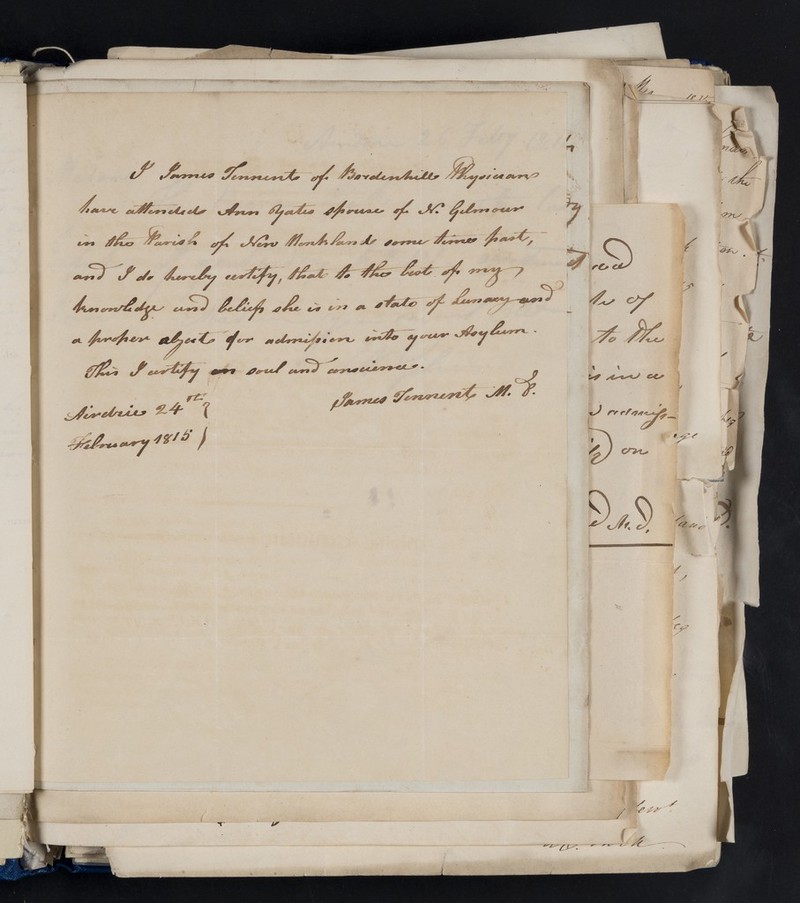 I James Tennent of Bordenhill Physician
have attended Ann Yates spouse of N. Gilmour
in the Parish of New Monkland some time past,
and I do hereby certify, that to the best of my
knowledge and belief she is in a state of Lunacy and
a proper object for admission into your Asylum.
This I certify on soul and conscience.
James Tennent M. D.
Airdrie 24th
February 1815
of
to the
is in a
admiss-
on
M.D.
the